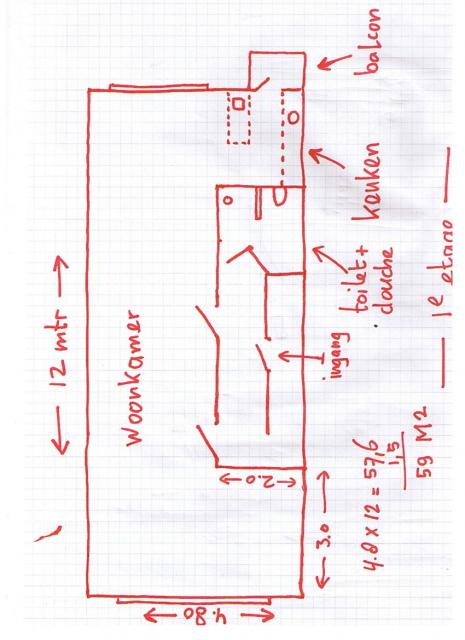 ← 12 mtr →
Woonkamer
balcon
keuken
toilet +
douche
ingang
← 2.0 →
← 3.0 →
← 4.80 →
4.8 x 12 = 57,6
1,5
59 M2
— 1e etage —